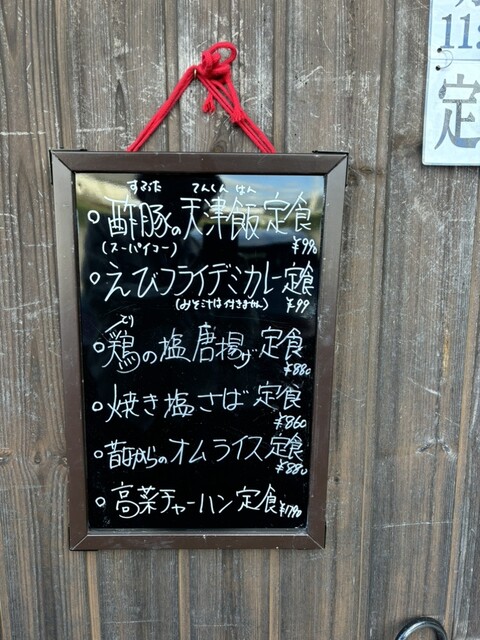 すぶた てんしん はん
○酢豚の天津飯定食
(スーパイコー) ¥990
○えびフライデミカレー定食
(みそ汁は付きません)
とり
○鶏の塩唐揚げ定食
¥880
○焼き塩さば定食
¥860
○昔ながらのオムライス定食
¥880
○高菜チャーハン定食
11:
定